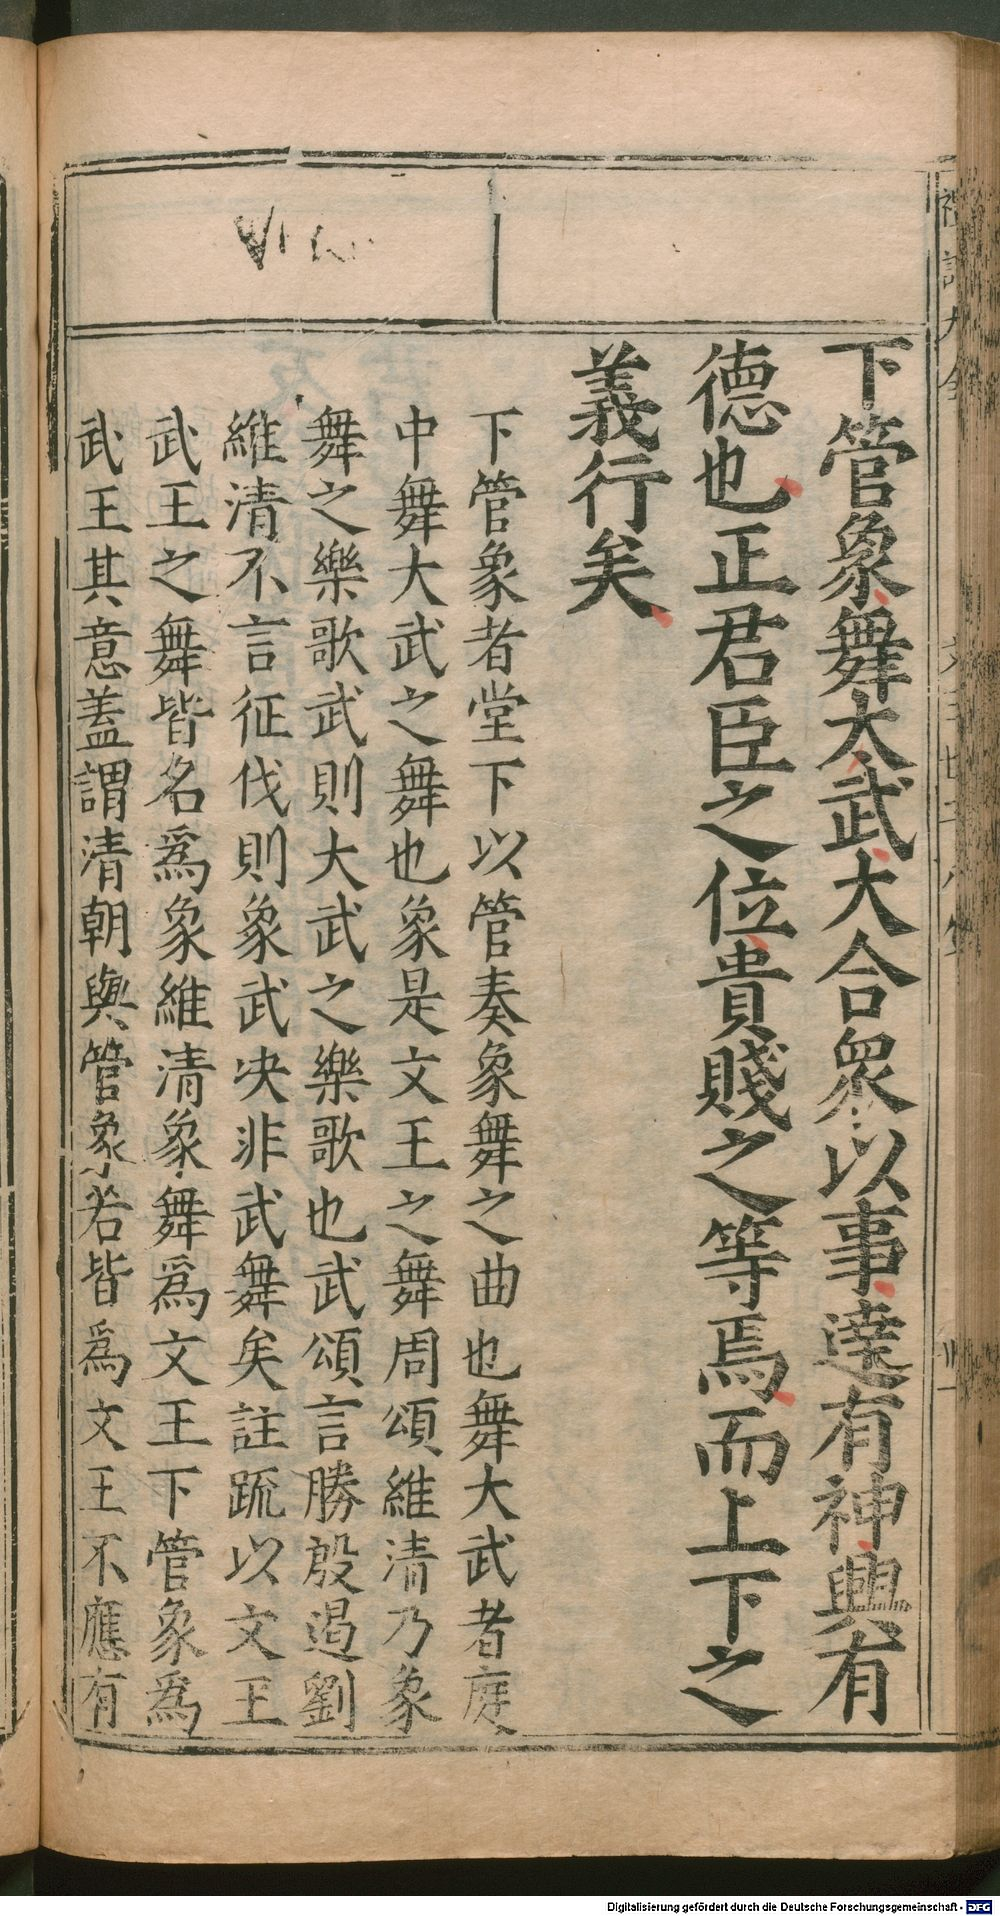 下管象舞大武大合衆以事達有神興有
德也正君臣之位貴賤之等焉而上下之
義行矣
下管象者堂下以管奏象舞之曲也舞大武者庭
中舞大武之舞也象是文王之舞周頌維清乃象
舞之樂歌武則大武之樂歌也武頌言勝殷遏劉
維清不言征伐則象武决非武舞矣註疏以文王
武王之舞皆名爲象維清象舞爲文王下管象爲
武王其意葢謂清朝與管象若皆爲文王不應有
Digitalisierung gefördert durch die Deutsche Forschungsgemeinschaft - DFG